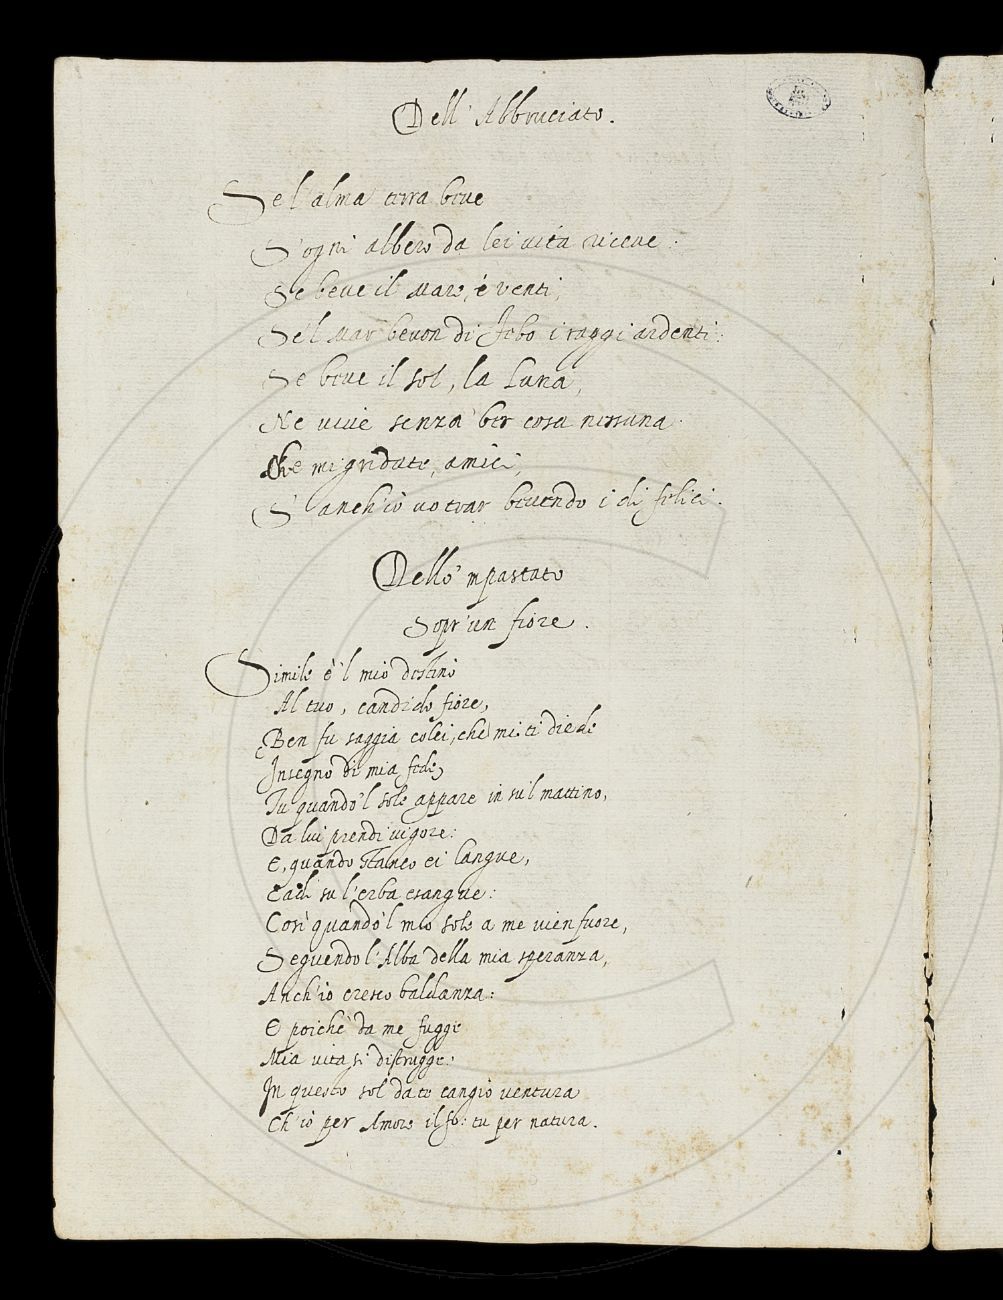 Dell' Abbruciato.
Se l'alma terra beve
S'ogni albero da lei vita riceve:
Se beve il Mare, è venti,
Se'l Mar bevon di Febo i raggi ardenti:
Se beve il sol, la Luna,
Ne vive senza ber cosa nessuna.
Che mi gridate, amici,
S'anch'io vo trar bevendo i dì felici.
Dello'mpastato
Sopr'un fiore.
Simile è'l mio destino
Al tuo, candido fiore,
Ben fu saggia colei, che mi ti diede
Insegno di mia fede,
Tu quando'l sole appare in sul mattino,
Da lui prendi vigore:
E, quando stanco ei langue,
Cadi su l'erba esangue:
Così quando'l mio sole a me vien fuore,
Seguendo l'Alba della mia speranza,
Anch'io cresco baldanza:
E poiche da me fugge
Mia vita si distrugge:
In questo sol da te cangio ventura
Ch'io per Amore il fo: tu per natura.